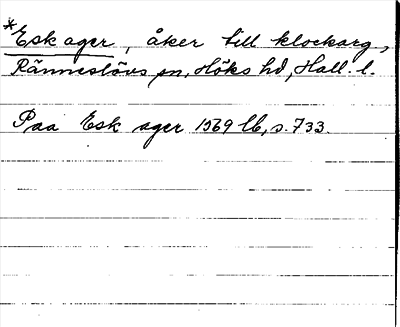 *Esk ager, åker till klockarg,
Ränneslövs sn, Höks hd, Hall. l.
Paa Esk ager 1569 lb, s. 733.